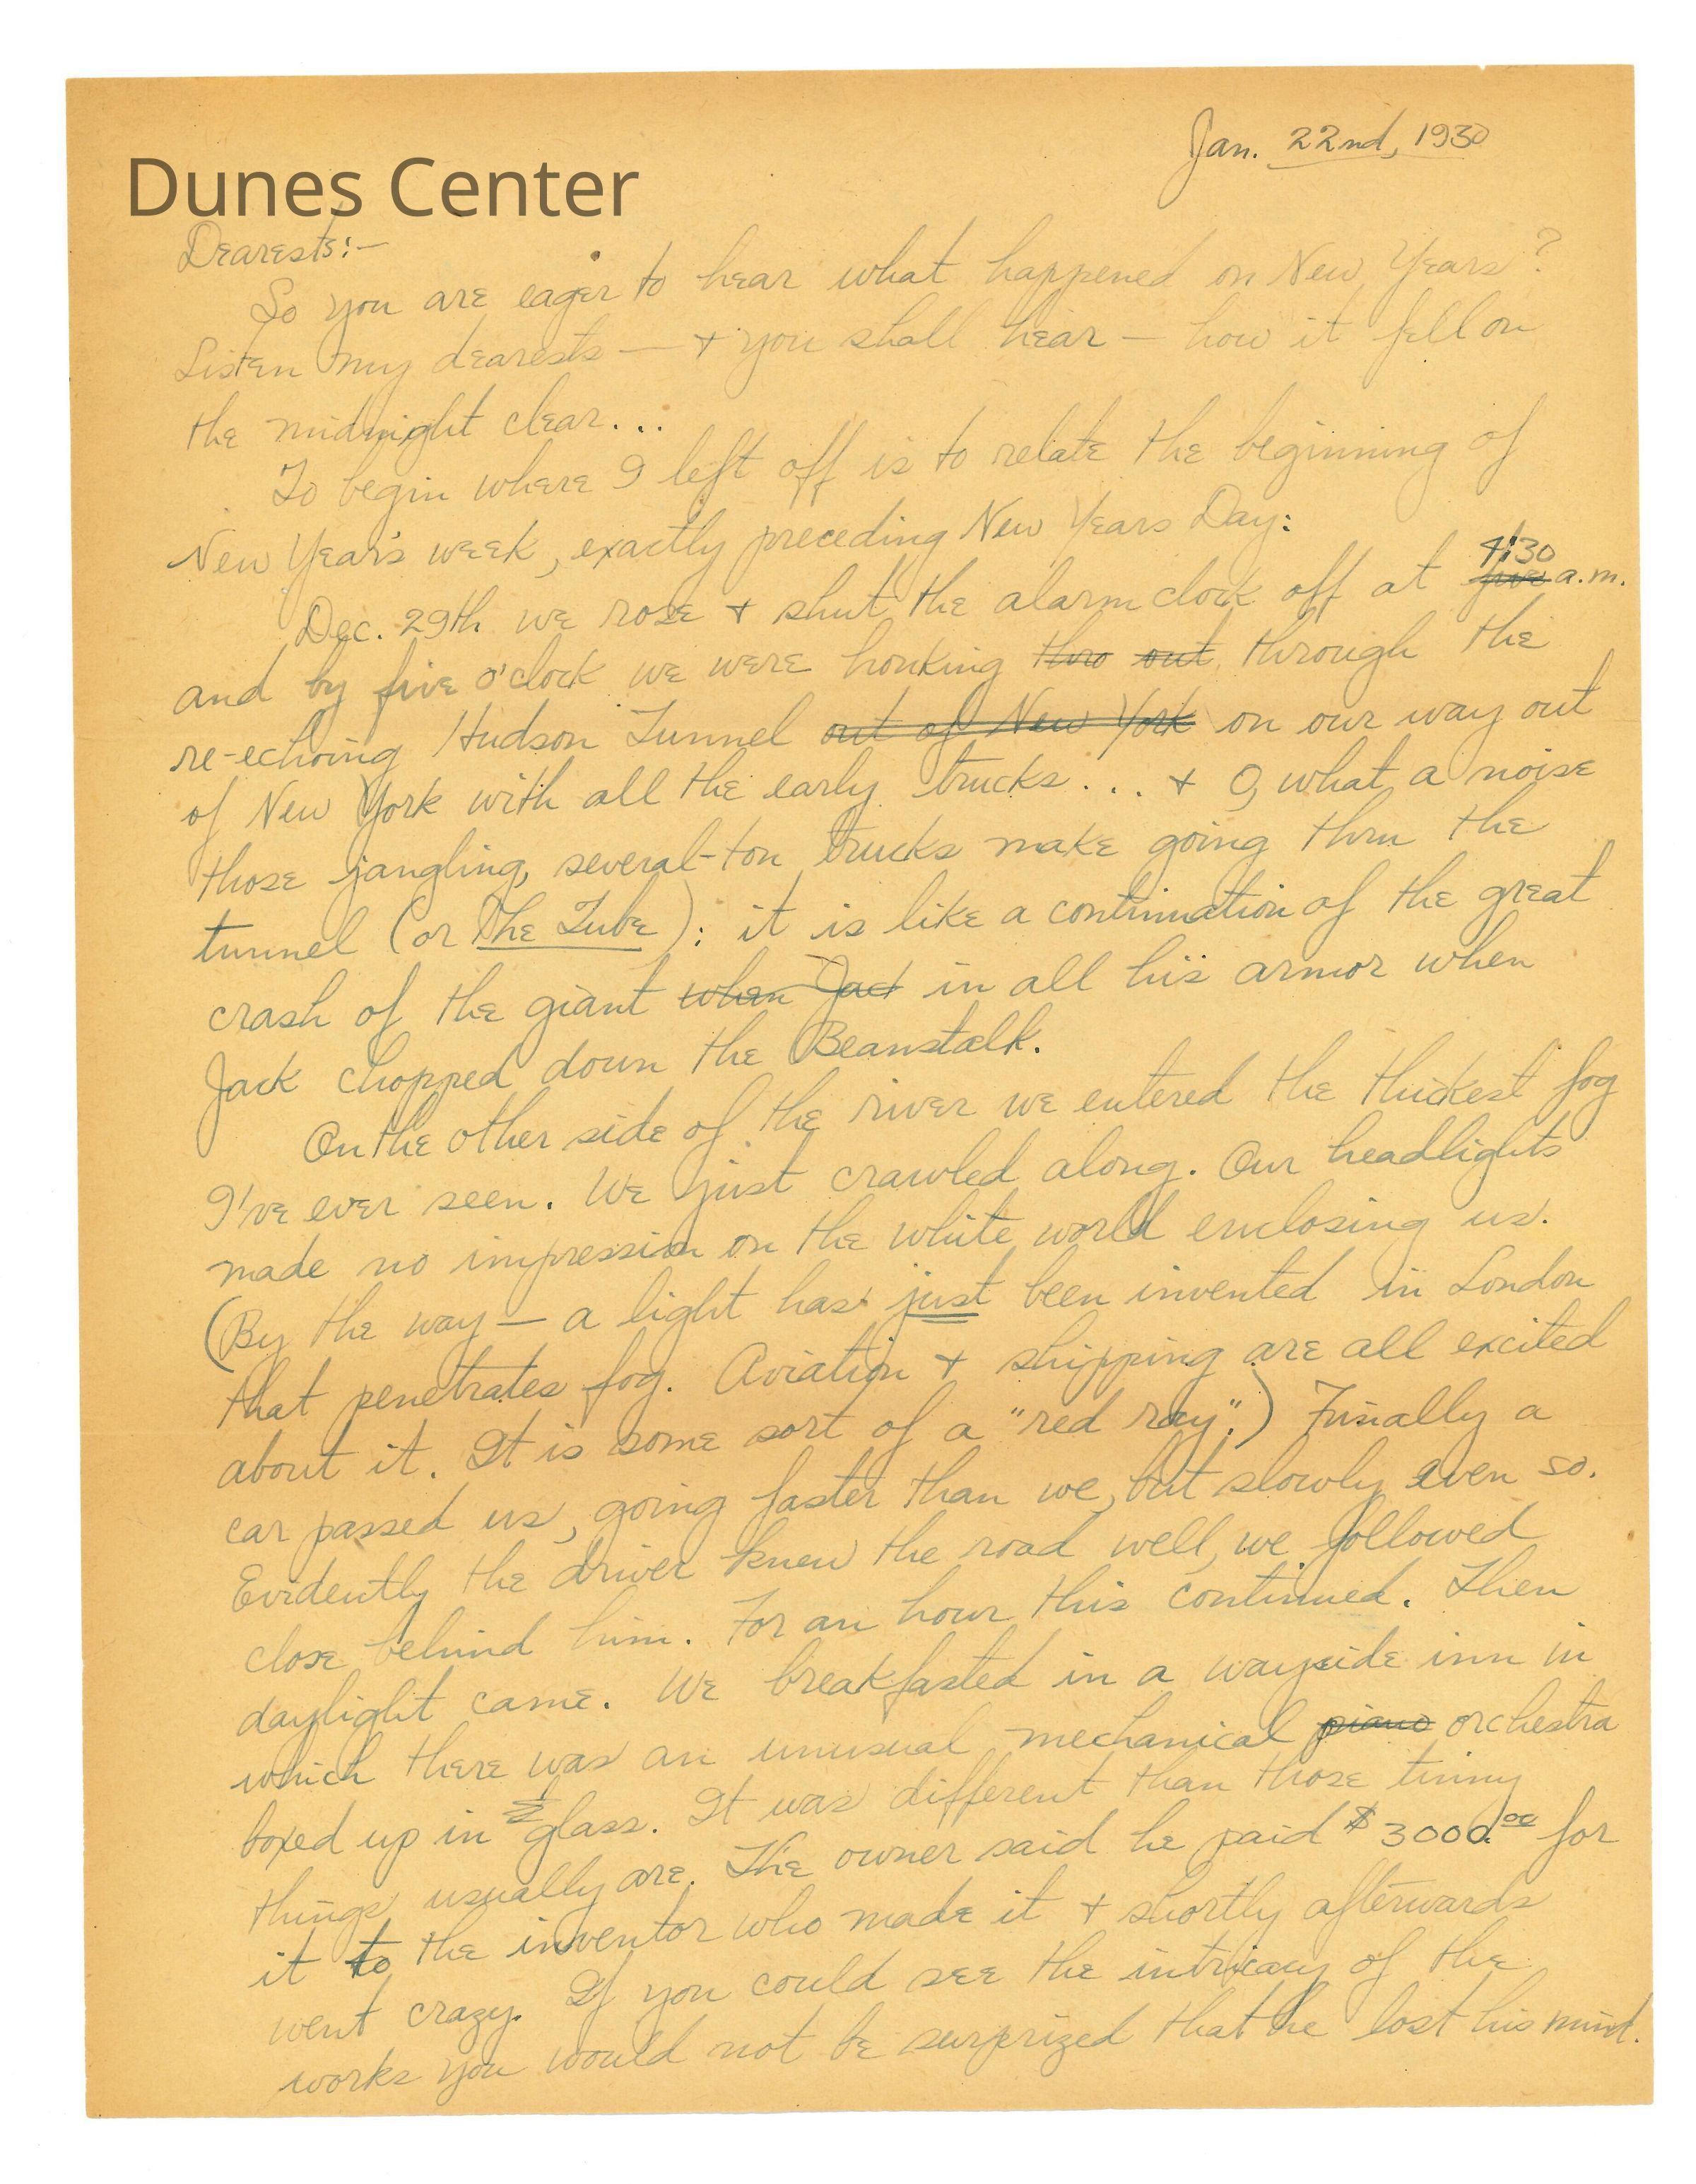 Jan. 22nd, 1930
Dunes Center
Dearests:—
So you are eager to hear what happened on New Years?
Listen my dearests — + you shall hear — how it fell on
the midnight clear...
To begin where I left off is to relate the beginning of
New Year's week, exactly preceding New Years Day:
Dec. 29th we rose + shut the alarm clock off at five 4:30 a.m.
and by five o'clock we were honking thro out through the
re-echoing Hudson Tunnel out of New York on our way out
of New York with all the early trucks... + O, what a noise
those jangling, several-ton trucks make going thru the
tunnel (or The Tube): it is like a continuation of the great
crash of the giant when Jack in all his armor when
Jack chopped down the Beanstalk.
On the other side of the river we entered the thickest fog
I've ever seen. We just crawled along. Our headlights
made no impression on the white world enclosing us.
(By the way — a light has just been invented in London
that penetrates fog. Aviation + shipping are all excited
about it. It is some sort of a "red ray".) Finally a
car passed us, going faster than we, but slowly even so.
Evidently the driver knew the road well, we followed
close behind him. For an hour this continued. Then
daylight came. We breakfasted in a wayside inn in
which there was an unusual mechanical piano orchestra
boxed up in glass. It was different than those tinny
things usually are. The owner said he paid $3000.00 for
it to the inventor who made it + shortly afterwards
went crazy. If you could see the intricacy of the
works you would not be surprized that he lost his mind.